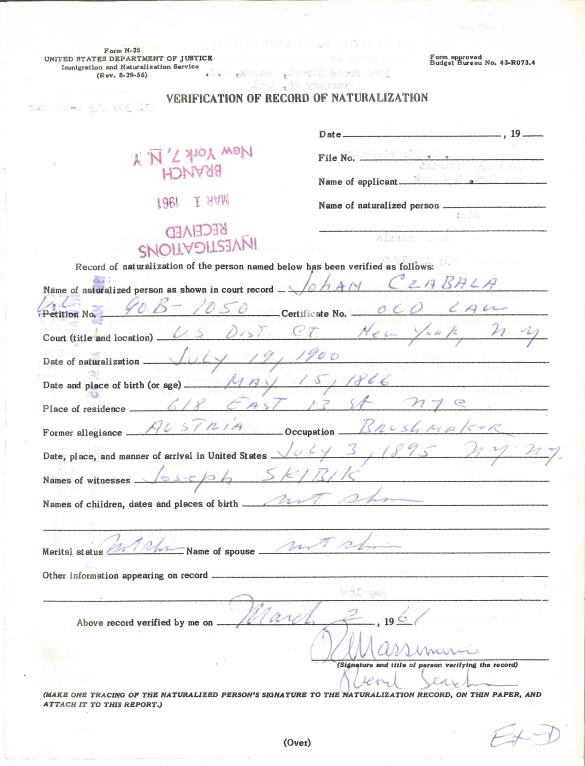 Form N-25
UNITED STATES DEPARTMENT OF JUSTICE
Immigration and Naturalization Service
(Rev. 8-29-56)
Form approved
Budget Bureau No. 43-R073.4
VERIFICATION OF RECORD OF NATURALIZATION
Date , 19
File No.
Name of applicant
Name of naturalized person
INVESTIGATIONS
RECEIVED
MAR 1 1961
BRANCH
New York, 7, N. Y.
Record of naturalization of the person named below has been verified as follows:
Name of naturalized person as shown in court record Johan CZABALA
Petition No. 90B-1050 Certificate No. OLD LAW
Court (title and location) US Dist. Ct New York, N.Y
Date of naturalization July 19, 1900
Date and place of birth (or age) MAY 15, 1866
Place of residence 618 EAST 13 St NYC
Former allegiance AUSTRIA Occupation Brushmaker
Date, place, and manner of arrival in United States July 3, 1895 NY. NY.
Names of witnesses Joseph SKIBIK
Names of children, dates and places of birth not shown
Marital status not shn Name of spouse not shn
Other information appearing on record
Above record verified by me on March 2, 1961
Massimini
(Signature and title of person verifying the record)
Record Search
(MAKE ONE TRACING OF THE NATURALIZED PERSON'S SIGNATURE TO THE NATURALIZATION RECORD, ON THIN PAPER, AND
ATTACH IT TO THIS REPORT.)
Ex-D
(Over)